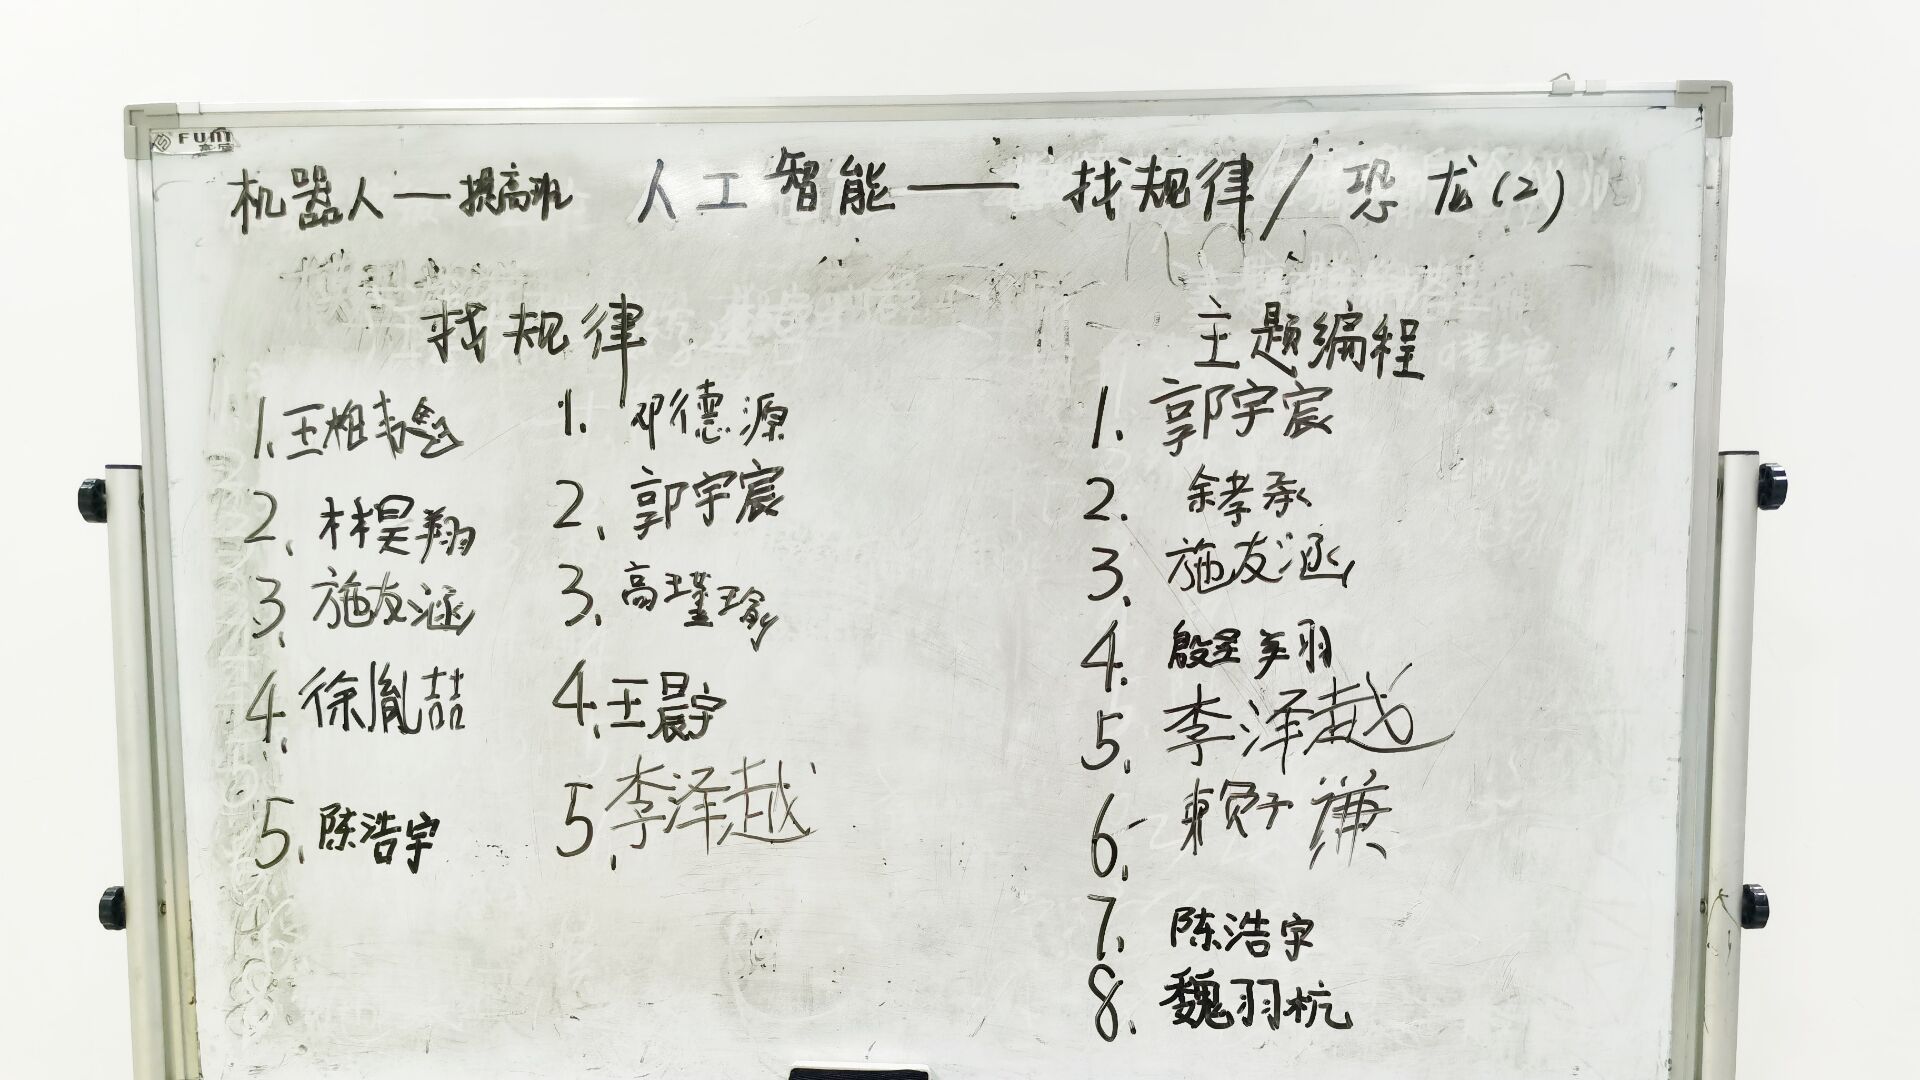 FUNI
机器人——提高班 人工智能——找规律/恐龙(2)
找规律
1.王相
2.林昊翔
3.施友涵
4.徐胤喆
5.陈浩宇
1.邓德源
2.郭宇宸
3.高瑾瑜
4.王晨宇
5.李泽越
主题编程
1.郭宇宸
2.余孝承
3.施友涵
4.殷圣羽
5.李泽越
6.赖子谦
7.陈浩宇
8.魏羽杭